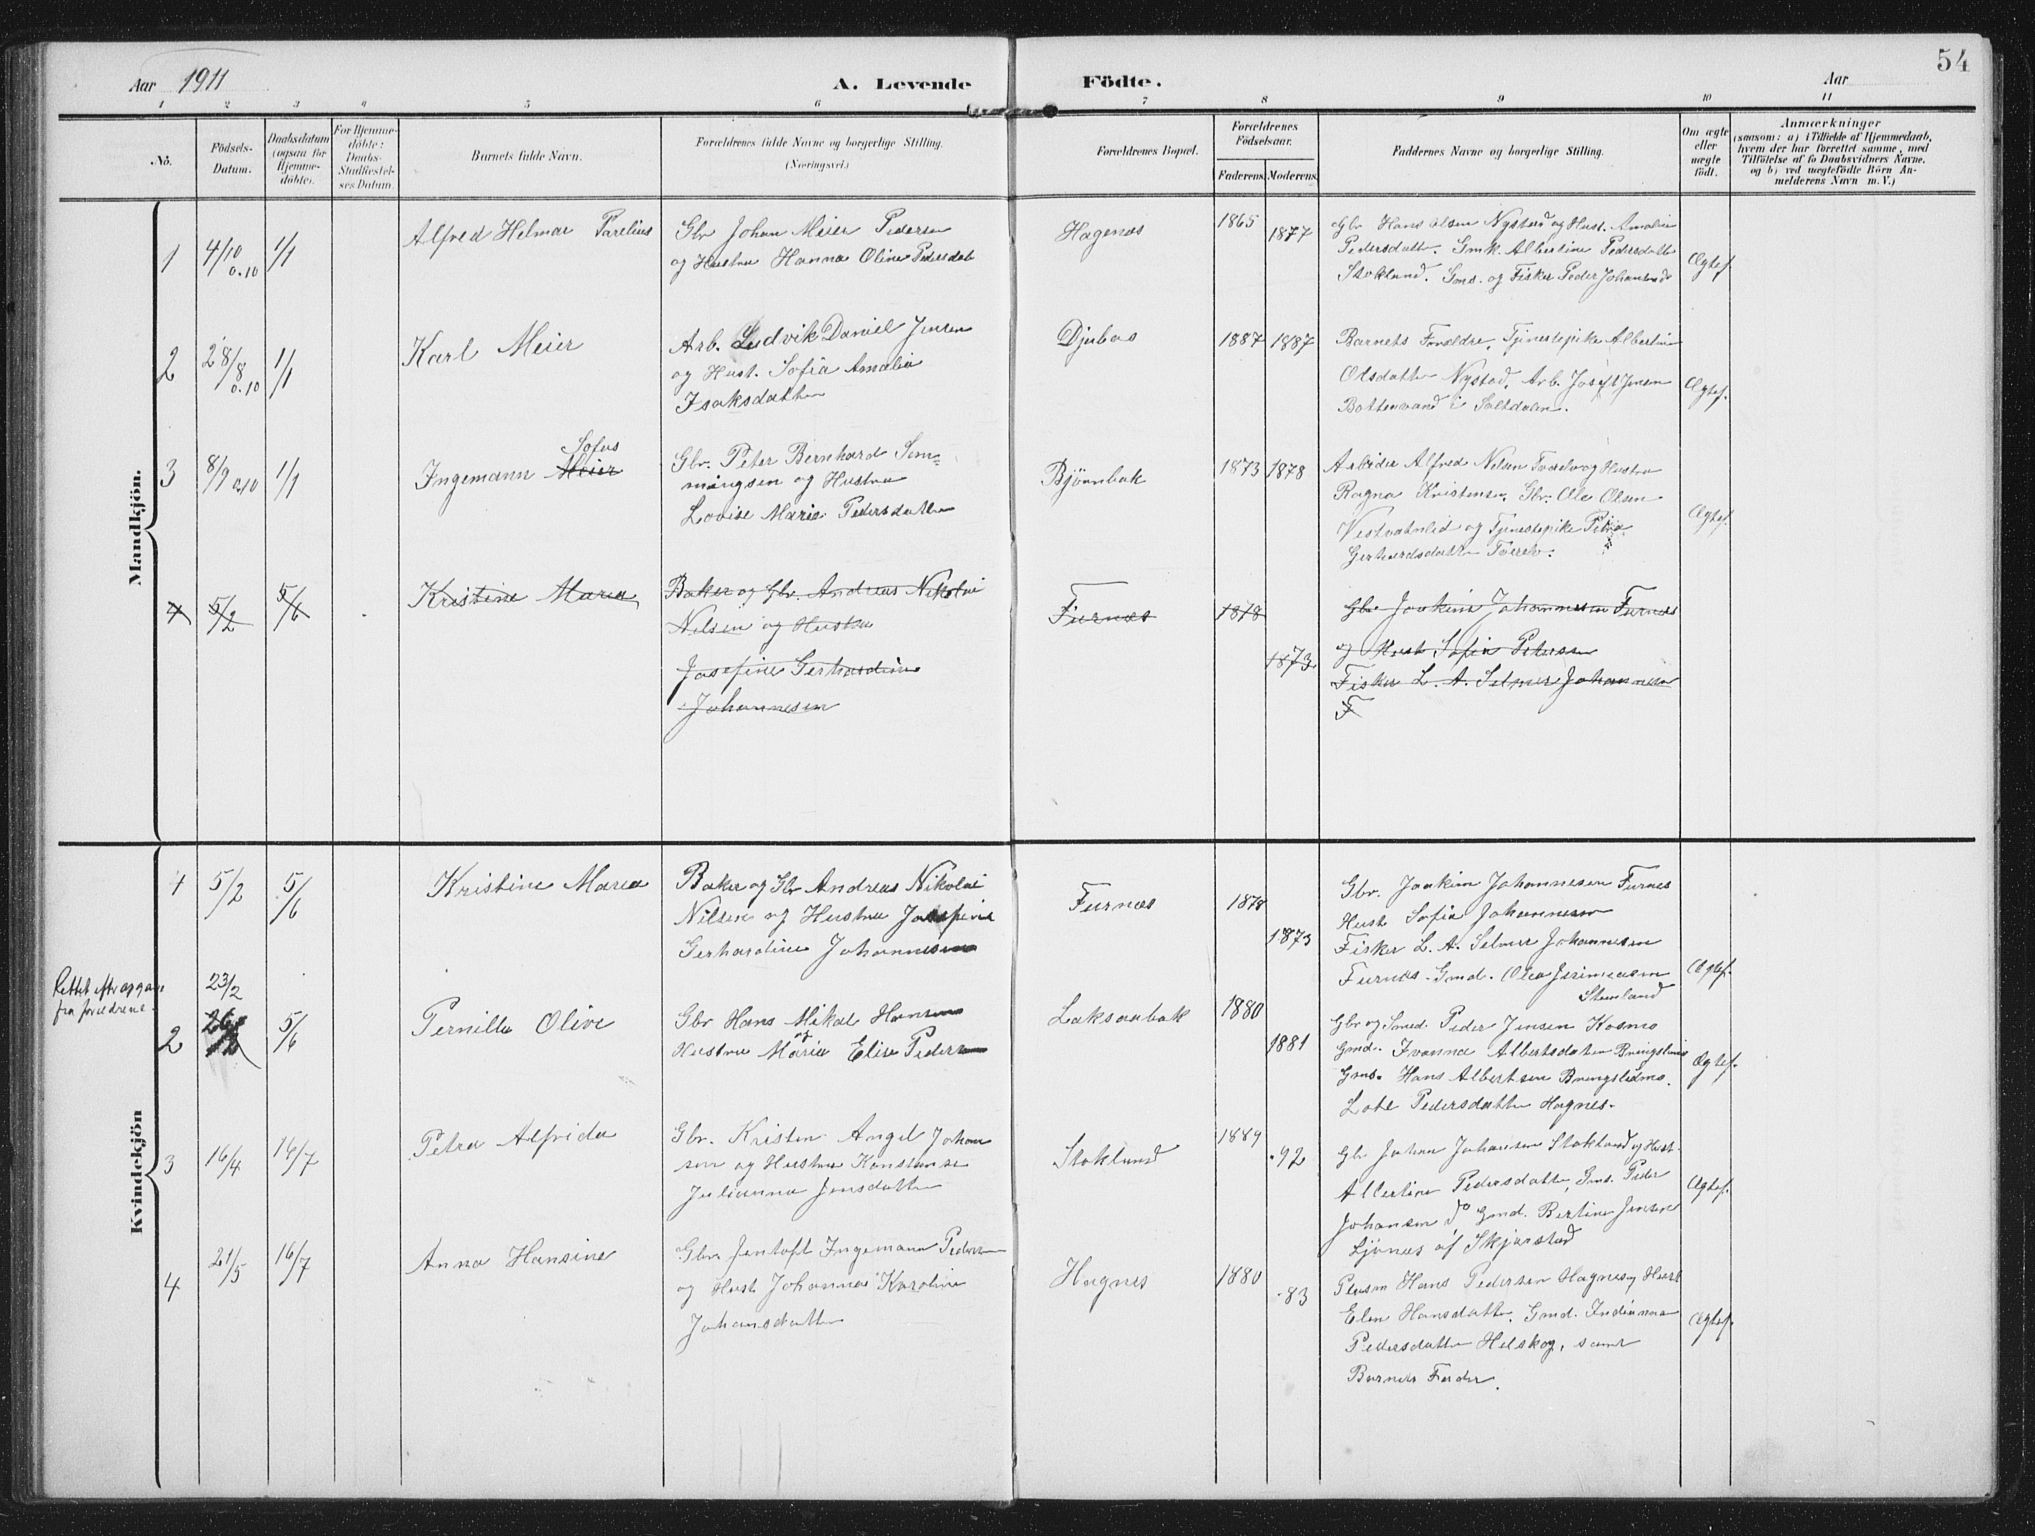 54
Aar 1911
A. Levende Födte.
Aar
1 2 3 4 5 6 7 8 9 10 11
No.
Födsels-Datum.
Daabsdatum (ogsaa for Hjemmedöbte).
For Hjemmedöbte: Daabs-Stadfæstelses Datum.
Barnets fulde Navn.
Forældrenes fulde Navne og borgerlige Stilling. (Næringsvei.)
Forældrenes Bopæl.
Forældrenes Födselsaar.
Faderens. Moderens.
Faddernes Navne og borgerlige Stilling.
Om ægte eller uægte födt.
Anmærkninger
(saasom: a) i Tilfælde af Hjemmedaab, hvem der har forrettet samme, med Tilföielse af to Daabsvidners Navne, og b) ved uægtefödte Börn Anmelderens Navn m. V.)
Mandkjön.
1 4/10 0.10 1/1
Alfred Helmar Parelius
Gbr Johan Meier Pedersen
og Hustru Hanna Oline Pedersdat
Hagenæs
1865 1877
Gbr Hans Olsen Nystad og Hust. Amalie
Pedersdatter. Gmk. Albertine Pedersdatter
Stokland. Gms. og Fisker Peder Johansen
Ægtef.
2 28/8 0.10 1/1
Karl Meier
Arb. Ludvik Daniel Jensen
og Hust. Sofia Amalia
Isaksdatter
Djubos
1887 1887
Barnets Forældre, Tjenestepike Albertine
Olsdatter Nystad, Arb. Josef Jensen
Bottenvand i Saltdalen.
Ægtef.
3 8/9 0.10 1/1
Sofus
Ingemann Meier
Gbr. Peter Bernhard Sem=
mingsen og Hustru
Lovise Marie Pedersdatter
Bjørnbak
1873 1878
Arbeider Alfred Nilsen og Hustru
Ragna Kristensen, Gbr. Ole Olsen
Vestvatnlid og Tjenestepike Petra
Gerhardsdatter
Ægtef.
4 5/2 5/6
Kristine Marea
Baker og Gbr. Andreas Nikolai
Nilsen og Hustru
Josefine Gerhardine
Johannesen
Furnæs
1878
1873
Gbr Joakim Johannesen Furnes
og Hust Sofia Petersen
Fisker L. A. Selmer Johannesen
F
Kvindekjön
1 5/2 5/6
Kristine Marea
Baker og Gbr Andreas Nikolai
Nilsen og Hustru Josefine
Gerhardine Johannesen
Furnæs
1878
1873
Gbr. Joakim Johannesen Furnes
Hust Sofia Johannesen
Fisker L. A. Selmer Johannesen
Furnæs. Gmd. Olea Jerimiasen
Stenland
Ægtef.
Rettet efter opgave
fra foreldrene.
23/2
2 5/6
Pernille Olive
Gbr Hans Mikal Hansen
og
Hustru Maria Elise Pedersen
Laksaabak
1880
1881
Gbr og Smed. Peder Jensen Kosmo
Gmd. Ivanna Albertsdatter Bringslimo
Gms. Hans Albertsen Bringslimo.
Love Pedersdatter Hagnes.
Ægtef.
3 16/4 16/7
Petra Alfrida
Gbr. Kristen Angel Johan
sen og Hustru Konstanse
Julianna Jensdatter
Stokland
1889
.92
Gbr Johan Johansen Stokland og Hust.
Albertine Pedersdatter, Gms. Peder
Johansen do Gmd. Bertine Jensen
Ljønes af Skjerstad
Ægtef.
4 21/5 16/7
Anna Hansine
Gbr. Jentoft Ingemann Pedersen
og Hust Johanna Karoline
Johansdatter
Hagnes
1880
.83
Hans Pedersen Hagnes og Hust
Elen Hansdatter. Gmd. Indianna
Pedersdatter Helskog, samt
Barnets Fader.
Ægtef.